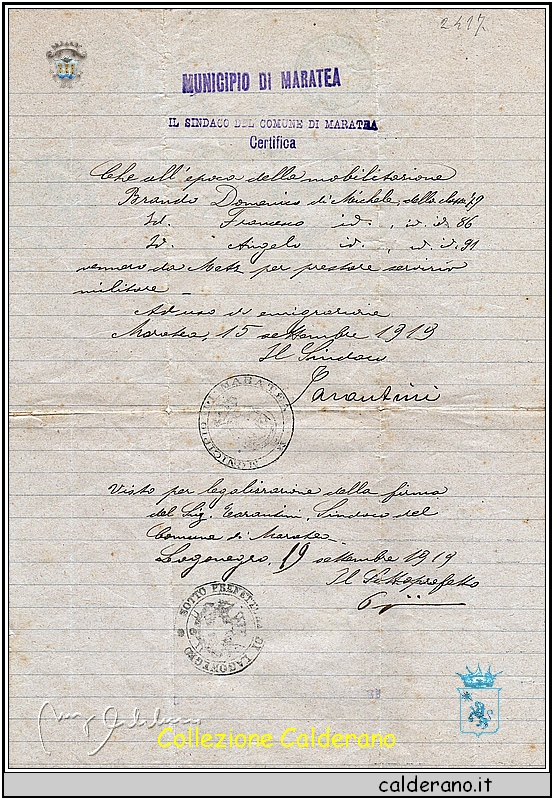 2417
MUNICIPIO DI MARATEA
IL SINDACO DEL COMUNE DI MARATEA
Certifica
Che all'epoca della mobilitazione
Brando Domenico di Michele, della classe 79
Id. Francesco id. , id. id. 86
Id. Angelo id. , id. id. 91
vennero da Metz per prestare servizio
militare
Ad uso di emigrazione
Maratea, 15 settembre 1919
Il Sindaco
Tarantini
MUNICIPIO DI MARATEA
Visto per legalizzazione della firma
del Sig. Tarantini, Sindaco del
Comune di Maratea
Lagonegro, 19 settembre 1919
Il Sottoprefetto
SOTTO PREFETTURA DI LAGONEGRO
Collezione Calderano
calderano.it